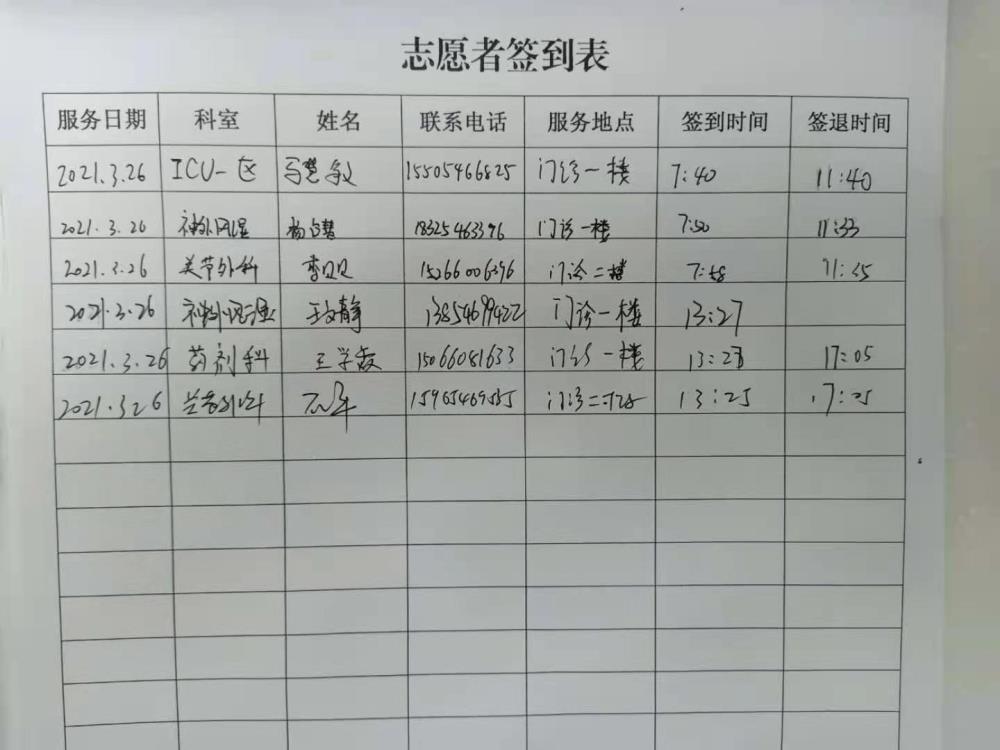 志愿者签到表
服务日期 科室 姓名 联系电话 服务地点 签到时间 签退时间
2021.3.26 ICU一区 马慧敏 15505466825 门诊一楼 7:40 11:40
2021.3.26 杨占慧 18325463396 门诊一楼 7:50 11:33
2021.3.26 关节外科 李贝贝 15266006396 门诊二楼 7:58 11:35
2021.3.26 静 13854699422 门诊一楼 13:27
2021.3.26 药剂科 王学 15066081633 门诊一楼 13:23 17:05
2021.3.26 门诊二楼 13:25 17:25